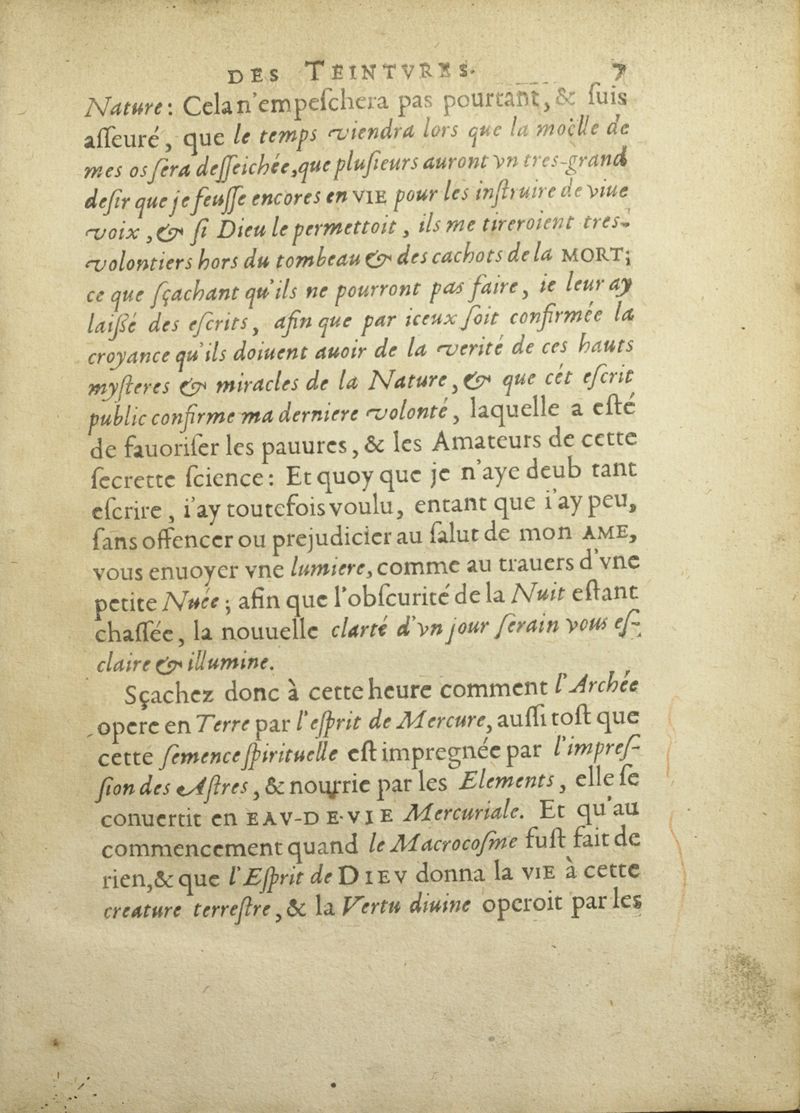 DES TEINTVRES. 7
Nature: Cela n'empeſchera pas pourtant, & ſuis
aſſeuré, que le temps viendra lors que la moëlle de
mes os ſera deſſeichée, que pluſieurs auront vn tres-grand
deſir que je feuſſe encores en VIE pour les inſtruire de viue
voix, & ſi Dieu le permettoit, ils me tireroient tres-
volontiers hors du tombeau & des cachots de la MORT;
ce que ſçachant qu'ils ne pourront pas faire, ie leur ay
laiſſé des eſcrits, afin que par iceux ſoit confirmée la
croyance qu'ils doiuent auoir de la verité de ces hauts
myſteres & miracles de la Nature, & que cét eſcrit
public confirme ma derniere volonté, laquelle a eſté
de fauoriſer les pauures, & les Amateurs de cette
ſecrette ſcience: Et quoy que je n'aye deub tant
eſcrire, i'ay toutefois voulu, entant que i'ay peu,
ſans offencer ou prejudicier au ſalut de mon AME,
vous enuoyer vne lumiere, comme au trauers d'vne
petite Nuée; afin que l'obſcurité de la Nuit eſtant
chaſſée, la nouuelle clarté d'vn jour ſerain vous eſ-
claire & illumine.
Sçachez donc à cette heure comment l'Archée
opere en Terre par l'eſprit de Mercure, auſſi toſt que
cette ſemence ſpirituelle eſt impregnée par l'impreſ-
ſion des Aſtres, & nourrie par les Elements, elle ſe
conuertit en EAV-DE-VIE Mercuriale. Et qu'au
commencement quand le Macrocoſme fuſt fait de
rien, & que l'Eſprit de DIEV donna la VIE à cette
creature terreſtre, & la Vertu diuine operoit par les